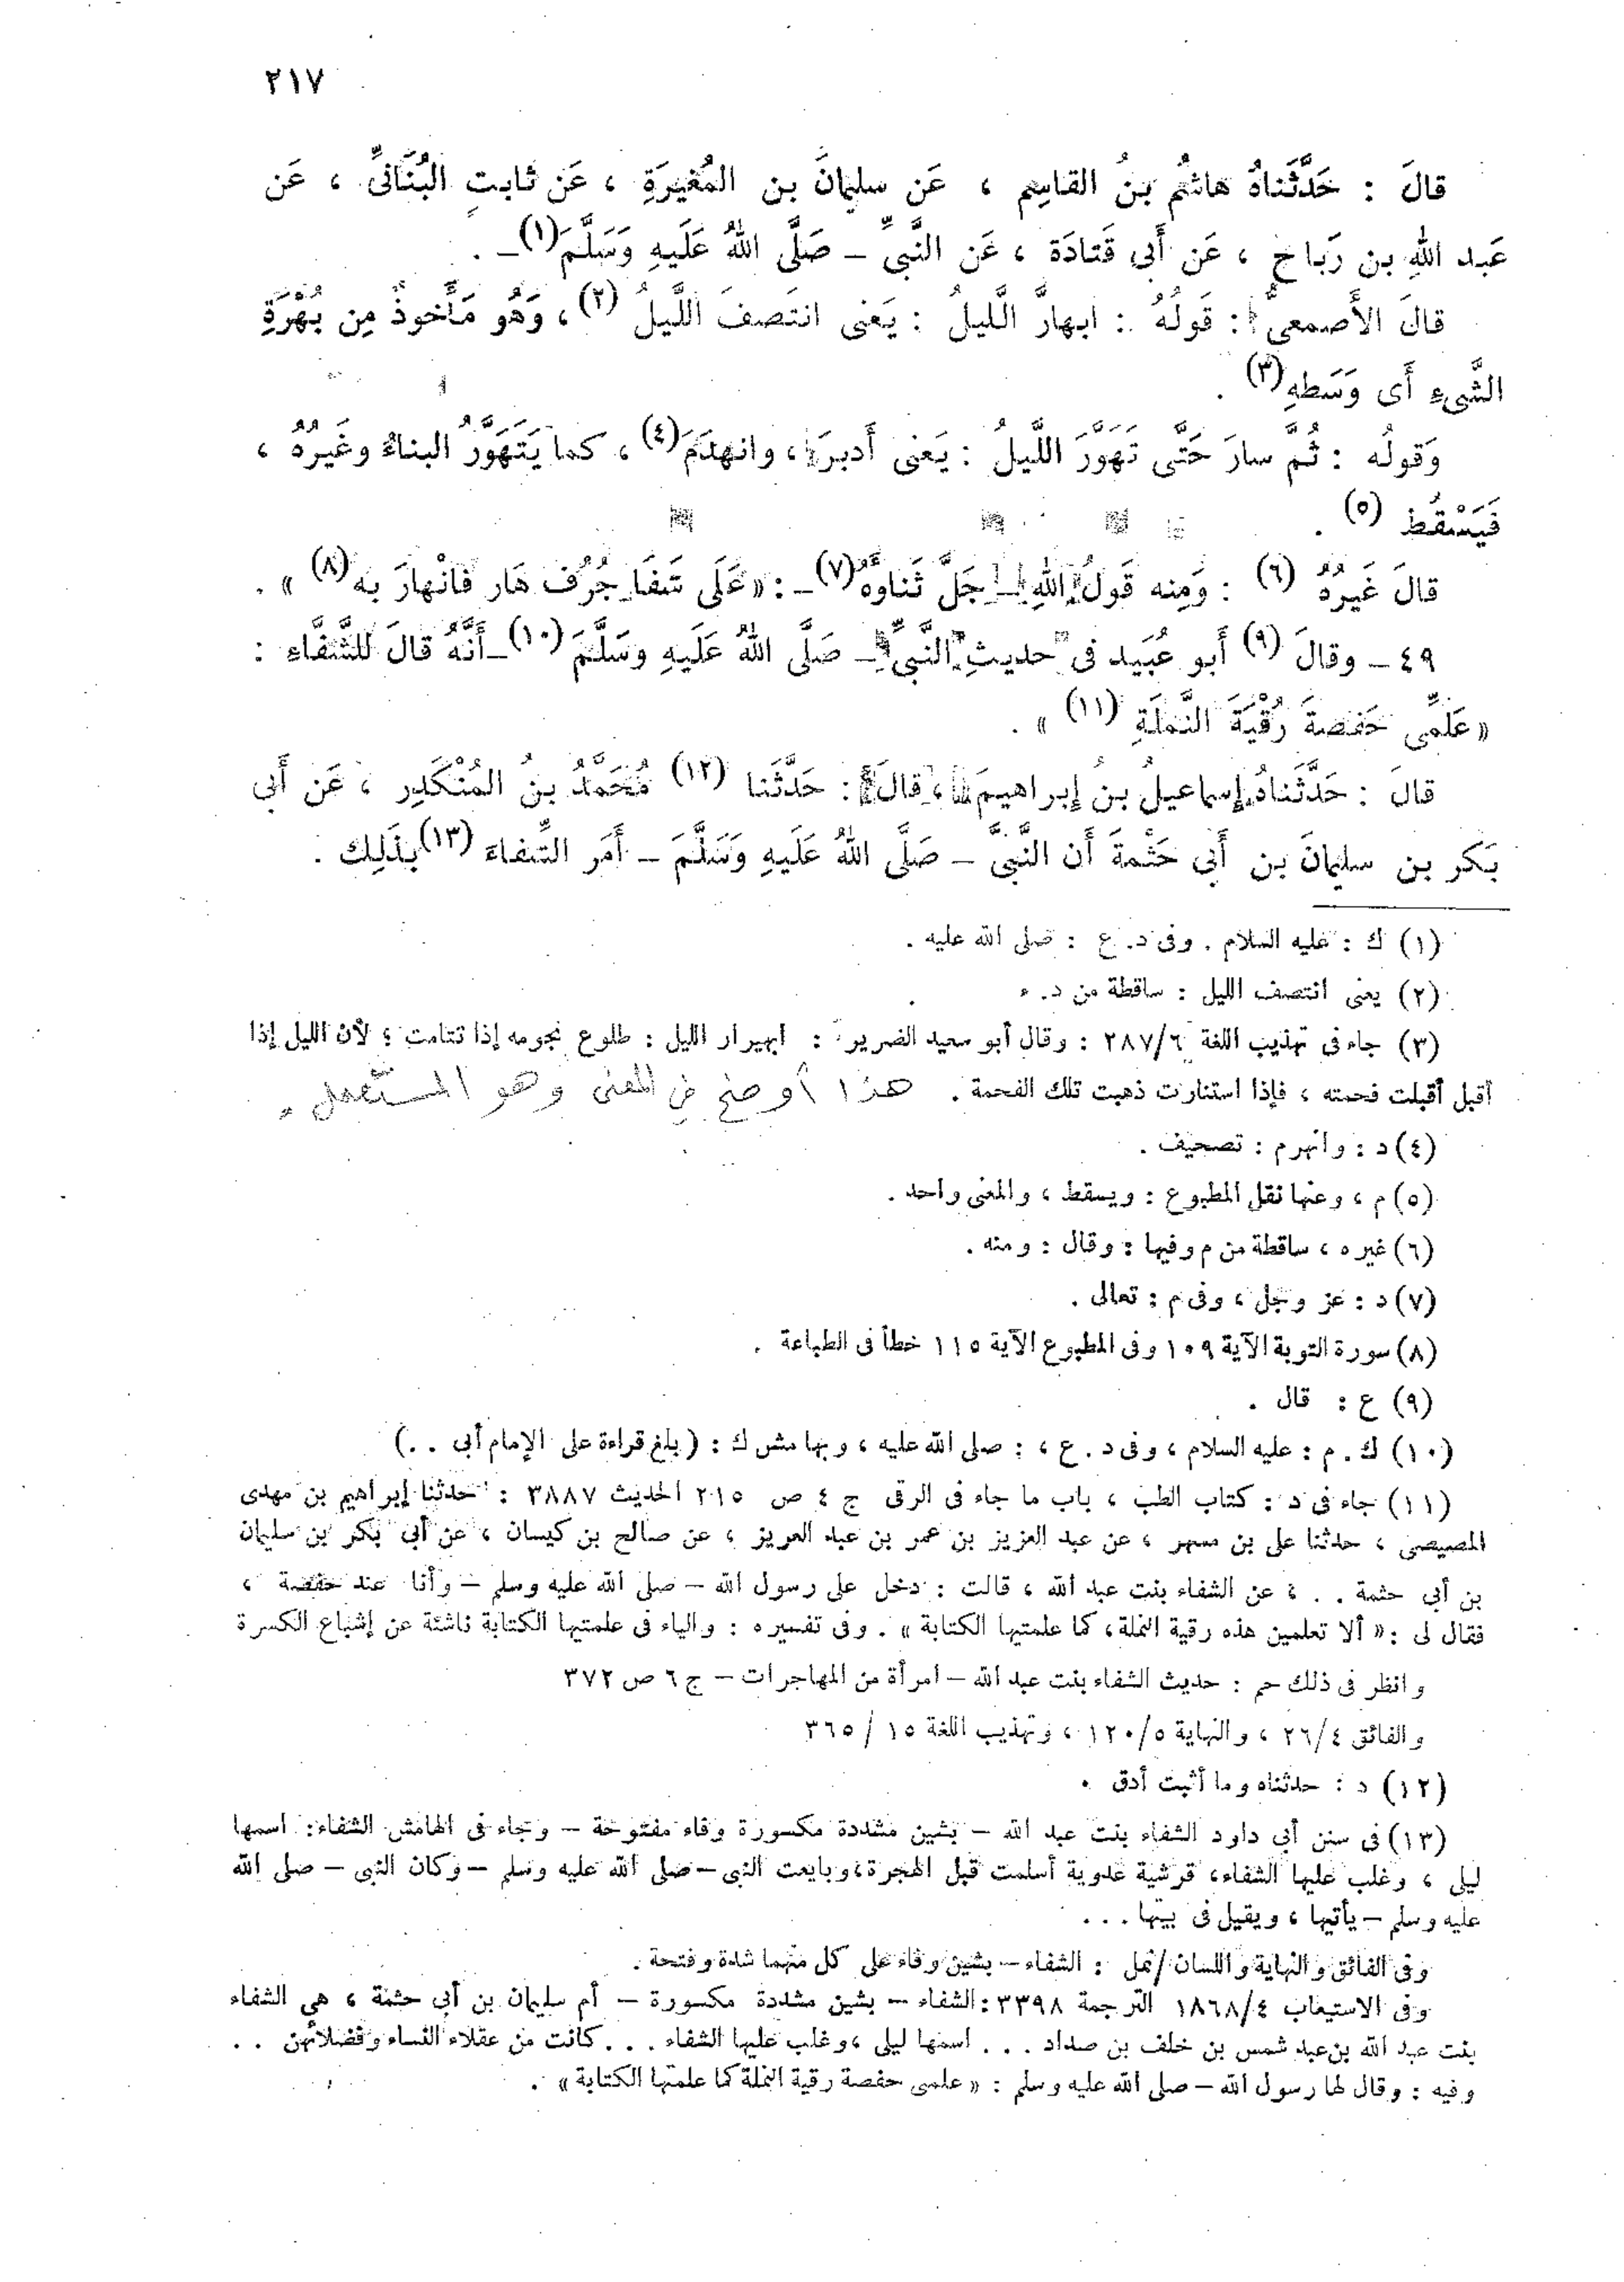 ٢١٧
قالَ : حَدَّثَناهُ هاشمُ بنُ القاسِم ، عَن سليمانَ بن المُغيرَةِ ، عَن ثابتِ البُنَانىِّ ، عَن
عَبد اللهِ بن رَباح ، عَن أَبى قَتادَة ، عَن النَّبىِّ – صَلَّى اللهُ عَلَيهِ وَسَلَّمَ(١)– .
قالَ الأَصمعىُّ : قَولُهُ : ابهارَّ الَّليلُ : يَعنى انتَصفَ اللَّيلُ (٢)، وَهُو مَأخوذٌ مِن بُهْرَةِ
الشَّىءِ أَى وَسَطهِ(٣) .
وَقولُه : ثُمَّ سارَ حَتَّى تَهَوَّرَ اللَّيلُ : يَعنى أَدبرَ ، وانهدَمَ(٤) ، كما يَتَهَوَّرُ البناءُ وغَيرُهُ ،
فَيَسْقُط (٥) .
قالَ غَيرُهُ (٦) : وَمِنه قَولُ اللهِ – جَلَّ ثَناوُهُ(٧)– : « عَلَى شَفَا جُرُف هَار فَانْهارَ به(٨) » .
٤٩ – وقالَ (٩) أَبو عُبَيد فى حديثِ النَّبىِّ – صَلَّى اللهُ عَلَيهِ وسَلَّمَ (١٠)–أَنَّهُ قالَ للشَّفَّاءِ :
« عَلِّمى حَفصةَ رُقْيَةَ النَّملَةِ (١١) » .
قالَ : حَدَّثَناهُ إِسماعيلُ بنُ إِبراهيمَ ، قالَ : حَدَّثَنا (١٢) مُحَمَّدُ بنُ المُنْكَدِر ، عَن أَبى
بَكر بن سليمانَ بن أَبى حَثْمةَ أَن النَّبىَّ – صَلَّى اللهُ عَلَيهِ وَسَلَّمَ – أَمَر الشِّفاءَ (١٣) بذَلِك .
(١) ك : عليه السلام . وفى د. ع : صلى الله عليه .
(٢) يعنى انتصف الليل : ساقطة من د. ء
(٣) جاء فى تهذيب اللغة ٢٨٧/٦ : وقال أبو سعيد الضرير : ابهيرار الليل : طلوع نجومه إذا تتامت ؛ لأن الليل إذا
أقبل أقبلت فحمته ، فإذا استنارت ذهبت تلك الفحمة . هذا أوضح فى المعنى وهو المستعمل .
(٤) د : وانهرم : تصحيف .
(٥) م ، وعنها نقل المطبوع : ويسقط ، والمعنى واحد .
(٦) غيره ، ساقطة من م وفيها : وقال : ومنه .
(٧) د : عز وجل ، وفى م : تعالى .
(٨) سورة التوبة الآية ١٠٩ وفى المطبوع الآية ١١٥ خطأ فى الطباعة .
(٩) ع : قال .
(١٠) ك . م : عليه السلام ، وفى د . ع ، : صلى الله عليه ، وبهامش ك : (بلغ قراءة على الإمام أبى . .)
(١١) جاء فى د : كتاب الطب ، باب ما جاء فى الرقى ج ٤ ص ٢١٥ الحديث ٣٨٨٧ : حدثنا إبراهيم بن مهدى
المصيصى ، حدثنا على بن مسهر ، عن عبد العزيز بن عمر بن عبد العزيز ، عن صالح بن كيسان ، عن أبى بكر بن سليمان
بن أبى حثمة . . ، عن الشفاء بنت عبد الله ، قالت : دخل على رسول الله – صلى الله عليه وسلم – وأنا عند حفصة ،
فقال لى : « ألا تعلمين هذه رقية النملة، كما علمتيها الكتابة » . وفى تفسيره : والياء فى علمتيها الكتابة ناشئة عن إشباع الكسرة
وانظر فى ذلك حم : حديث الشفاء بنت عبد الله – امرأة من المهاجرات – ج ٦ ص ٣٧٢
والفائق ٢٦/٤ ، والنهاية ١٢٠/٥ ، وتهذيب اللغة ١٥ / ٣٦٥
(١٢) د : حدثناه وما أثبت أدق .
(١٣) فى سنن أبى داود الشفاء بنت عبد الله – بشين مشددة مكسورة وفاء مفتوحة – وجاء فى الهامش الشفاء: اسمها
ليلى ، وغلب عليها الشفاء، قرشية عدوية أسلمت قبل الهجرة، وبايعت النبى –صلى الله عليه وسلم –وكان النبى – صلى الله
عليه وسلم – يأتيها ، ويقيل فى بيتها . . .
وفى الفائق والنهاية واللسان/نمل : الشفاء – بشين وفاء على كل منهما شدة وفتحة .
وفى الاستيعاب ١٨٦٨/٤ الترجمة ٣٣٩٨ : الشفاء – بشين مشددة مكسورة – أم سليمان بن أبى حثمة ، هى الشفاء
بنت عبد الله بن عبد شمس بن خلف بن صداد . . . اسمها ليلى ، وغلب عليها الشفاء . . . كانت من عقلاء النساء وفضلائهن . .
وفيه : وقال لها رسول الله – صلى الله عليه وسلم : « علمى حفصة رقية النملة كما علمتها الكتابة » .